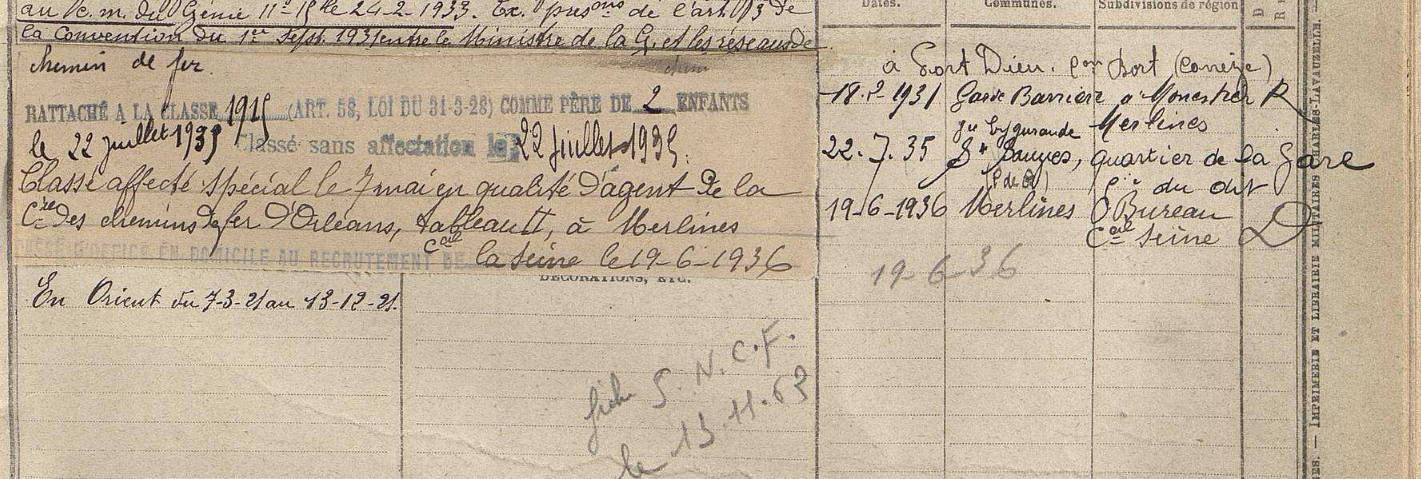 au C. m. du Génie 11e-15 le 24-2-1933. Ex. de l'art. 3 de
la Convention du 1er Sept. 1931 entre le Ministre de la G. et les réseaux de
chemin de fer.
RATTACHÉ A LA CLASSE 1915 (ART. 58, LOI DU 31-3-28) COMME PÈRE DE 2 ENFANTS
le 22 juillet 1935 Classé sans affectation le 22 juillet 1935.
Classé affecté spécial le 7 mai en qualité d'agent de la
Cie des chemins de fer d'Orléans, tableau II, à Merlines
Cal la Seine le 19-6-1936
D'OFFICE EN DOMICILE AU RECRUTEMENT DE
En Orient du 7-3-21 au 13-12-21.
DÉCORATIONS, ETC.
fiche S.N.C.F.
le 13.11.63
Dates.
Communes.
Subdivisions de région
à Port Dieu. par Bort (Corrèze)
18.2.1931 Garde Barrière à Monestier R
par Eygurande Merlines
22.7.35 St Sauves, quartier de la Gare
(P de D) du dit
19-6-1936 Merlines Bureau
Cal Seine D
19-6-36
IMPRIMERIE ET LIBRAIRIE MILITAIRES CHARLES-LAVAUZELLE.